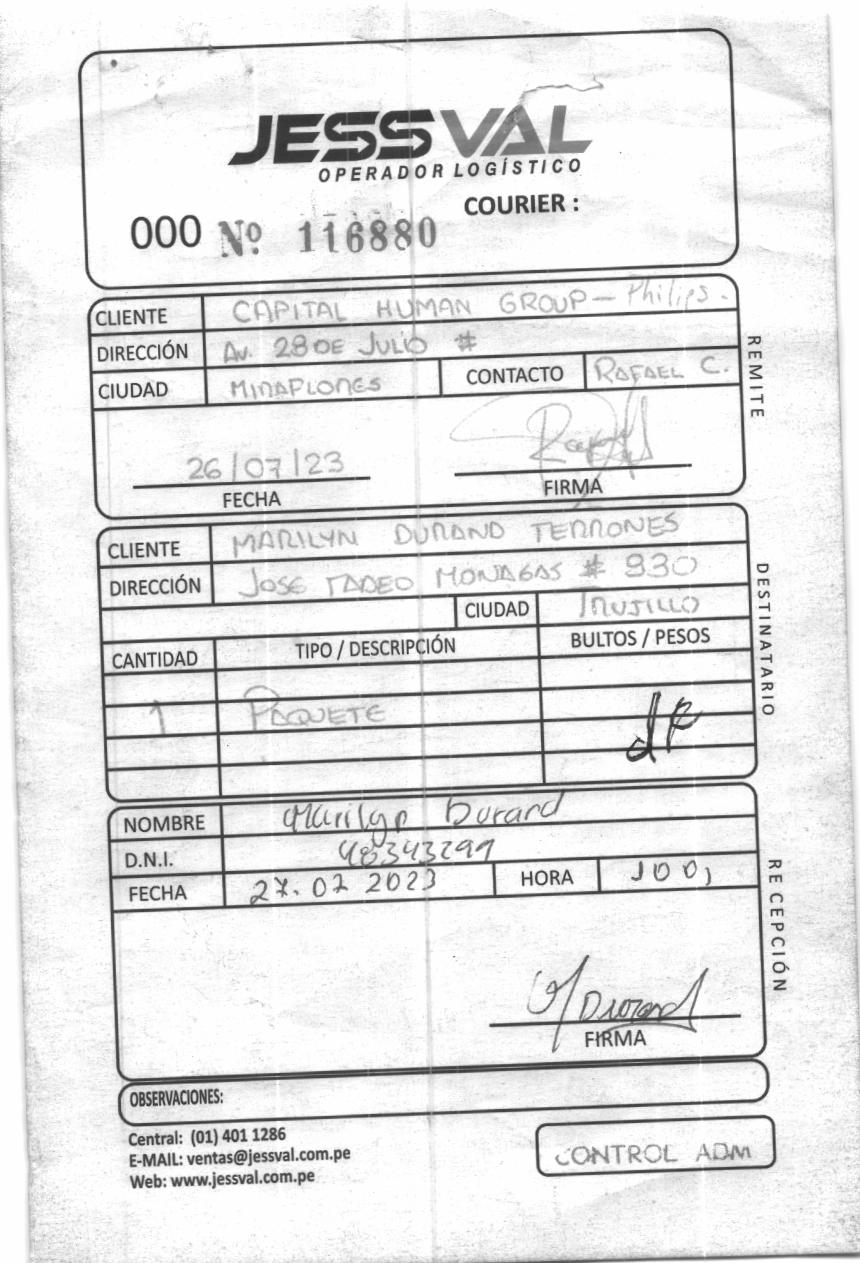 JESSVAL
OPERADOR LOGÍSTICO
COURIER :
000 Nº 116880
CLIENTE CAPITAL HUMAN GROUP - Philips.
DIRECCIÓN Av. 28 DE JULIO #
CIUDAD MIRAFLORES CONTACTO RAFAEL C.
REMITE
26/07/23
FECHA FIRMA
CLIENTE MARILYN DURAND TERRONES
DIRECCIÓN JOSE TADEO MONAGAS # 930
CIUDAD TRUJILLO
CANTIDAD TIPO / DESCRIPCIÓN BULTOS / PESOS
1 PAQUETE
DESTINATARIO
NOMBRE Marilyn Durand
D.N.I. 48343299
FECHA 27.07 2023 HORA
RECEPCIÓN
FIRMA
OBSERVACIONES:
Central: (01) 401 1286
E-MAIL: ventas@jessval.com.pe
Web: www.jessval.com.pe
CONTROL ADM